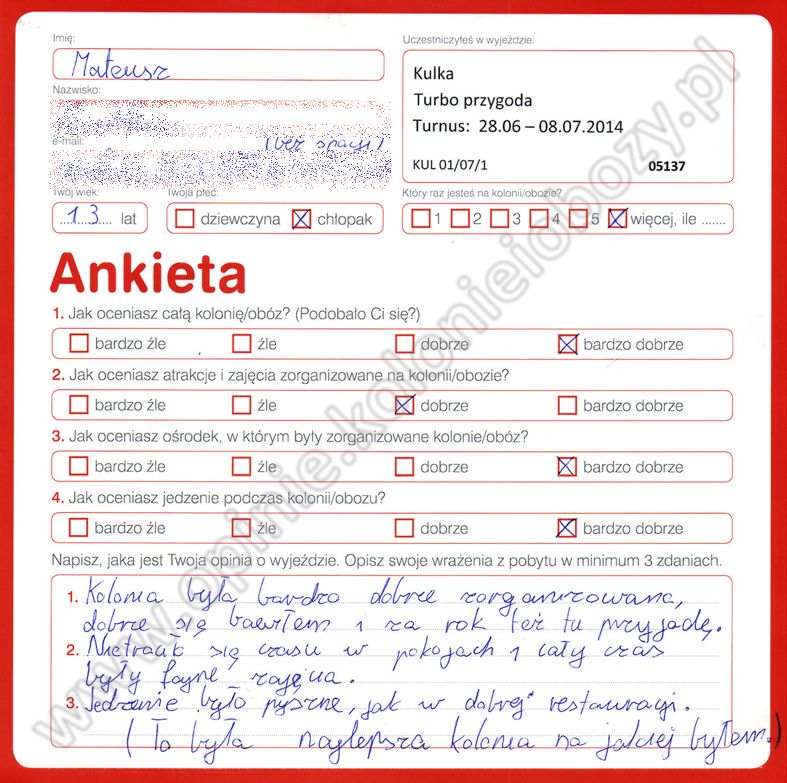 Imię:
Mateusz
Uczestniczyłeś w wyjeździe:
Kulka
Turbo przygoda
Turnus: 28.06 – 08.07.2014
KUL 01/07/1 05137
Nazwisko:
e-mail: (bez spacji)
Twój wiek:
13 lat
Twoja płeć:
dziewczyna chłopak
Który raz jesteś na kolonii/obozie?
1 2 3 4 5 więcej, ile .......
Ankieta
1. Jak oceniasz całą kolonię/obóz? (Podobało Ci się?)
bardzo źle źle dobrze bardzo dobrze
2. Jak oceniasz atrakcje i zajęcia zorganizowane na kolonii/obozie?
bardzo źle źle dobrze bardzo dobrze
3. Jak oceniasz ośrodek, w którym były zorganizowane kolonie/obóz?
bardzo źle źle dobrze bardzo dobrze
4. Jak oceniasz jedzenie podczas kolonii/obozu?
bardzo źle źle dobrze bardzo dobrze
Napisz, jaka jest Twoja opinia o wyjeździe. Opisz swoje wrażenia z pobytu w minimum 3 zdaniach.
1. Kolonia była bardzo dobrze zorganizowana,
dobrze się bawiłem i za rok też tu przyjadę.
2. się czasu w pokojach i cały czas
były fajne zajęcia.
3. Jedzenie było pyszne, jak w dobrej restauracji.
(To była najlepsza kolonia na jakiej byłem.)
www.opinie.kolonieiobozy.pl